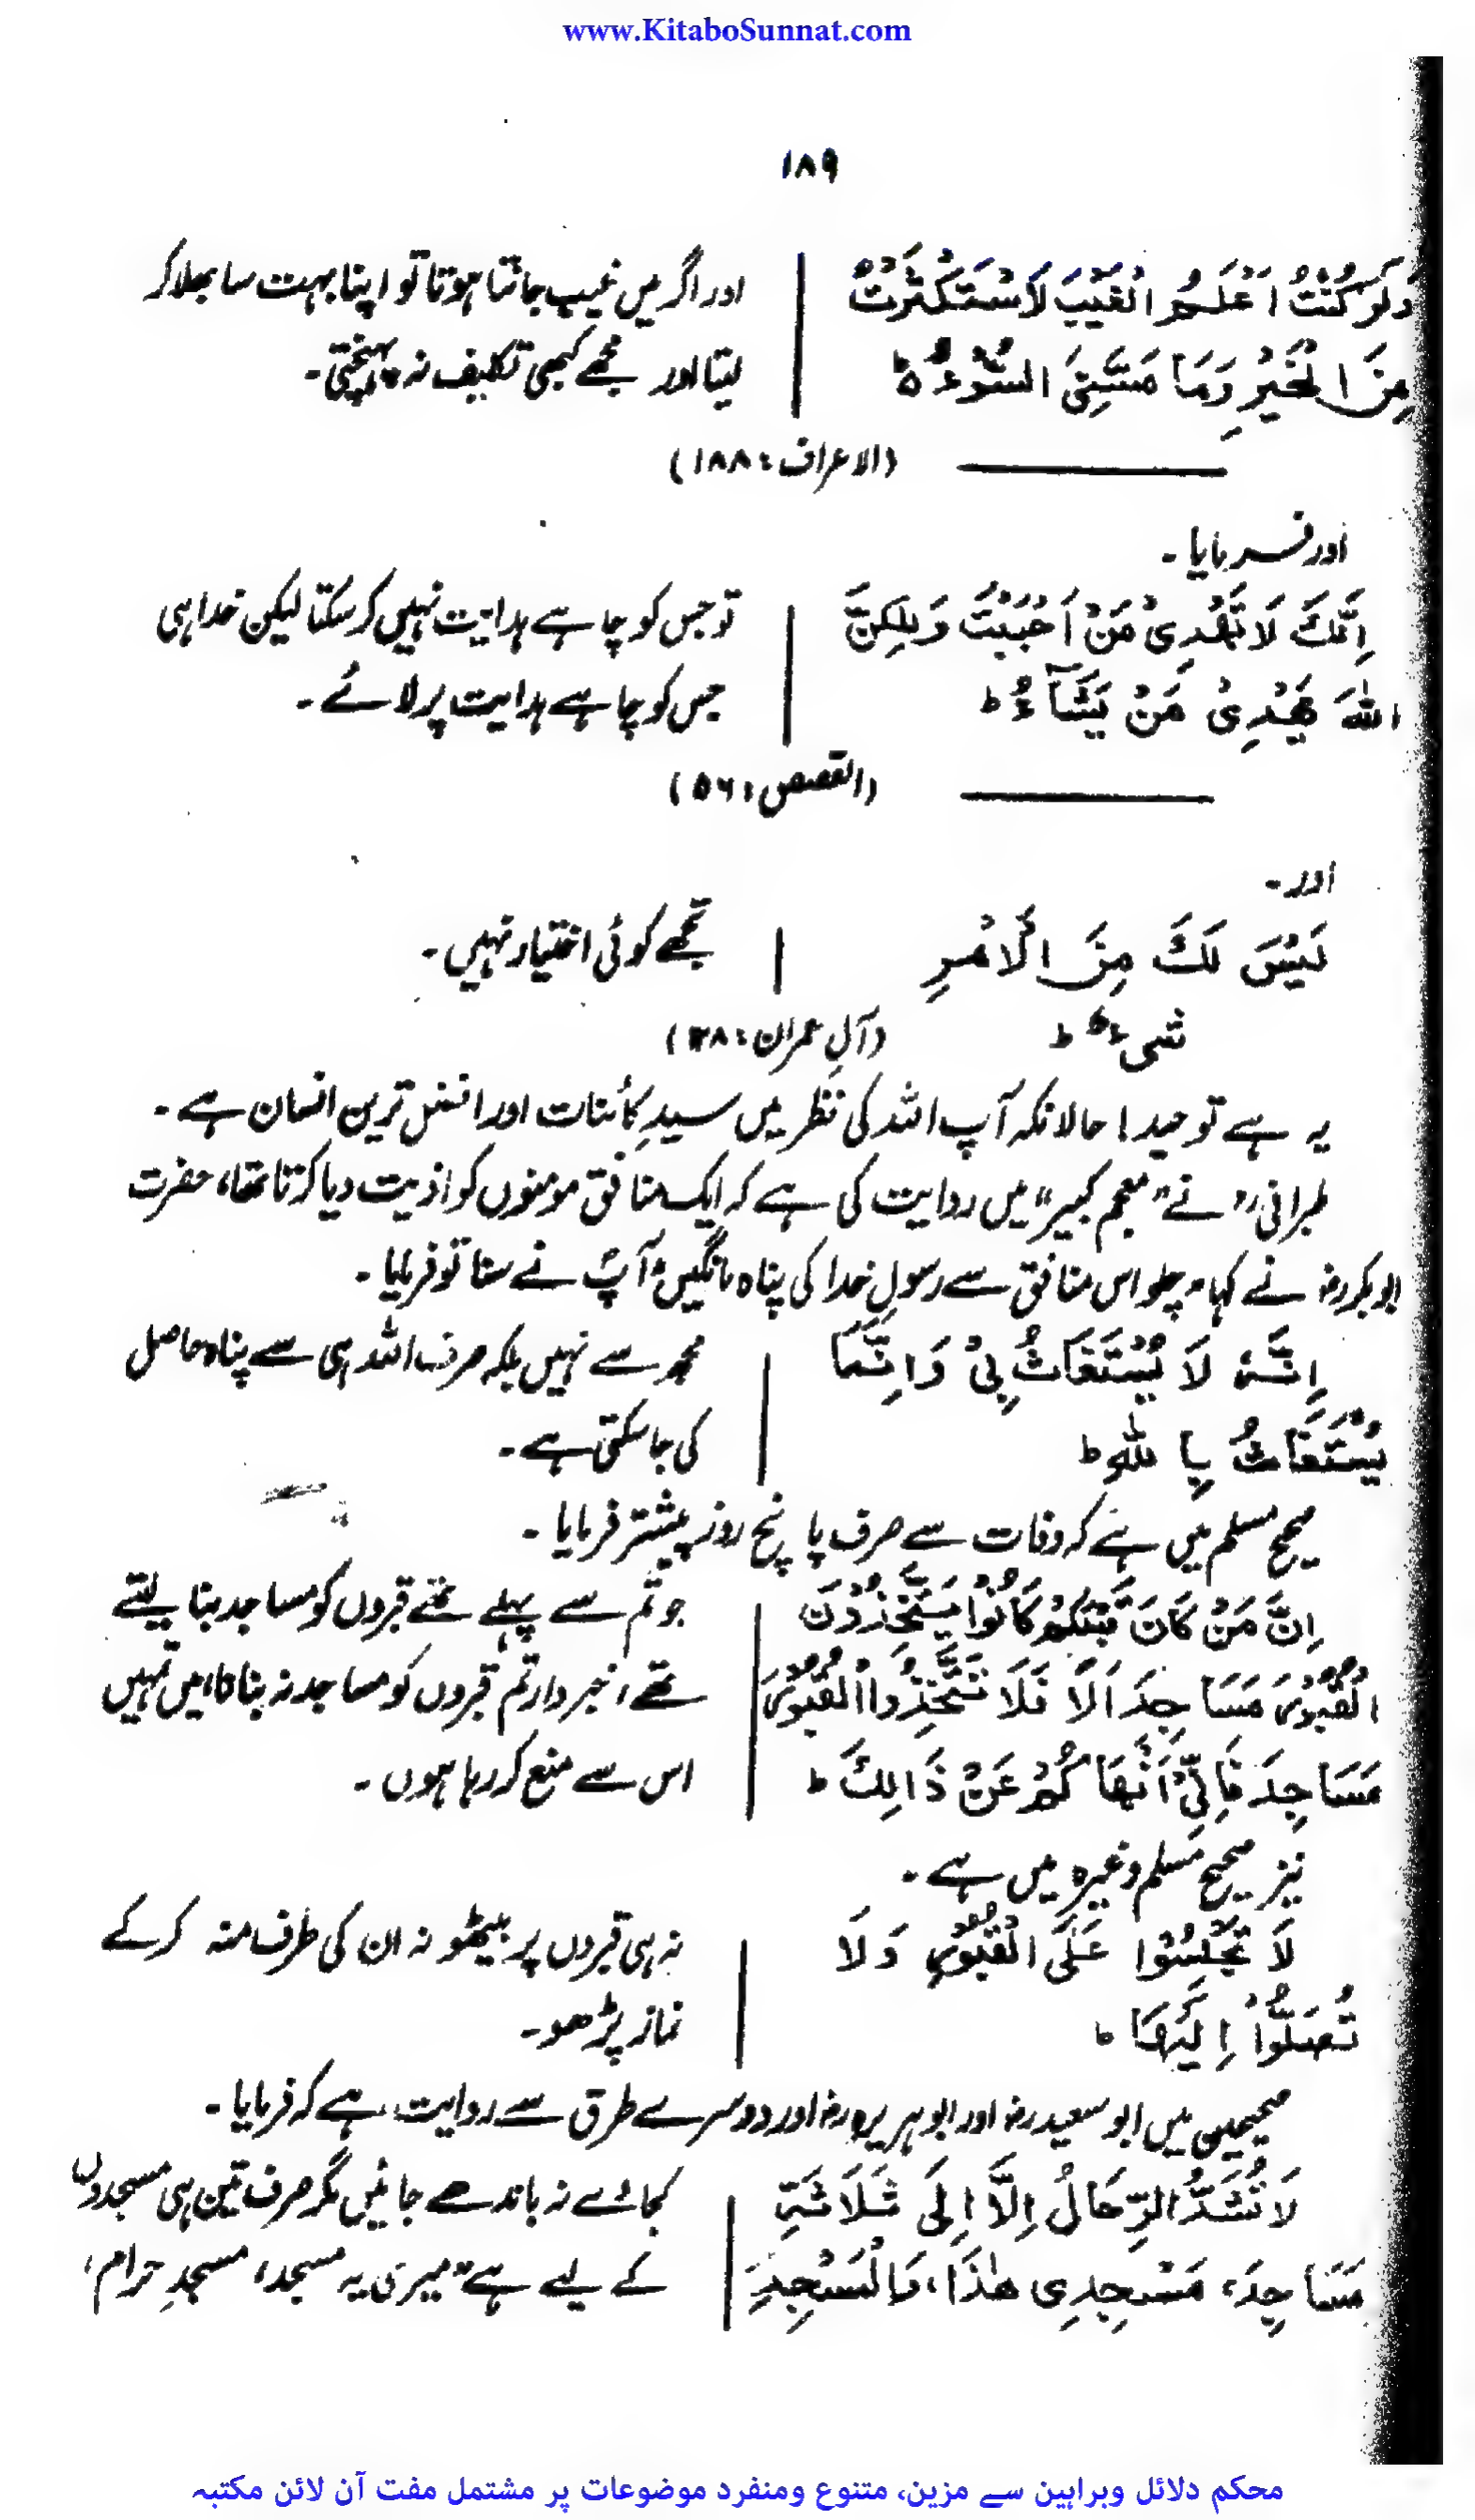 www.KitaboSunnat.com
۱۸۹
وَلَوْ كُنْتُ اَعْلَمُ الْغَيْبَ لَاسْتَكْثَرْتُ
مِنَ الْخَيْرِ وَمَا مَسَّنِىَ السُّوْٓءُ ط
اور اگر میں غیب جانتا ہوتا تو اپنا بہت سا بھلا کر
لیتا اور مجھے کبھی تکلیف نہ پہنچتی۔
(الاعراف: ۱۸۸)
اور فرمایا۔
اِنَّكَ لَا تَهْدِىْ مَنْ اَحْبَبْتَ وَلٰكِنَّ
اللهَ يَهْدِىْ مَنْ يَّشَآءُ ط
تو جس کو چاہے ہدایت نہیں کر سکتا لیکن خدا ہی
جس کو چاہے ہدایت پر لائے۔
(القصص: ۵۶)
اور۔
لَيْسَ لَكَ مِنَ الْاَمْرِ
شىء ط
تجھے کوئی اختیار نہیں۔
(آلِ عمران: ۲۸)
یہ ہے توحید! حالانکہ آپ اللہ کی نظر میں سیدِ کائنات اور افضل ترین انسان ہے۔
طبرانی رح نے "معجم کبیر" میں روایت کی ہے کہ ایک منافق مومنوں کو اذیت دیا کرتا تھا، حضرت
ابوبکر رض نے کہا، چلو اس منافق سے رسولِ خدا کی پناہ مانگیں، آپؐ نے سنا تو فرمایا۔
اِنَّهٗ لَا يُسْتَغَاثُ بِىْ وَاِنَّمَا
يُسْتَغَاثُ بِاللهِ ط
مجھ سے نہیں بلکہ صرف اللہ ہی سے پناہ حاصل
کی جا سکتی ہے۔
صحیح مسلم میں ہے کہ وفات سے صرف پانچ روز پیشتر فرمایا۔
اِنَّ مَنْ كَانَ قَبْلَكُمْ كَانُوْا يَتَّخِذُوْنَ
الْقُبُوْرَ مَسَاجِدَ اَلَا فَلَا تَتَّخِذُوا الْقُبُوْرَ
مَسَاجِدَ فَاِنِّىْ اَنْهَاكُمْ عَنْ ذَالِكَ ط
جو تم سے پہلے تھے قبروں کو مساجد بنا لیتے
تھے، خبردار تم قبروں کو مساجد نہ بنانا، میں تمہیں
اس سے منع کر رہا ہوں۔
نیز صحیح مسلم وغیرہ میں ہے۔
لَا تَجْلِسُوْا عَلَى الْقُبُوْرِ وَلَا
تُصَلُّوْا اِلَيْهَا ط
نہ ہی قبروں پر بیٹھو نہ ان کی طرف منہ کر کے
نماز پڑھو۔
صحیحین میں ابو سعید رض اور ابو ہریرہ رض اور دوسرے طرق سے روایت ہے کہ فرمایا۔
لَا تُشَدُّ الرِّحَالُ اِلَّا اِلَى ثَلَاثَةِ
مَسَاجِدَ، مَسْجِدِى هٰذَا، وَالْمَسْجِدِ
کجاوے نہ باندھے جائیں مگر صرف تین ہی مسجدوں
کے لیے ہے "میری یہ مسجد، مسجدِ حرام،
محکم دلائل وبراہین سے مزین، متنوع ومنفرد موضوعات پر مشتمل مفت آن لائن مکتبہ